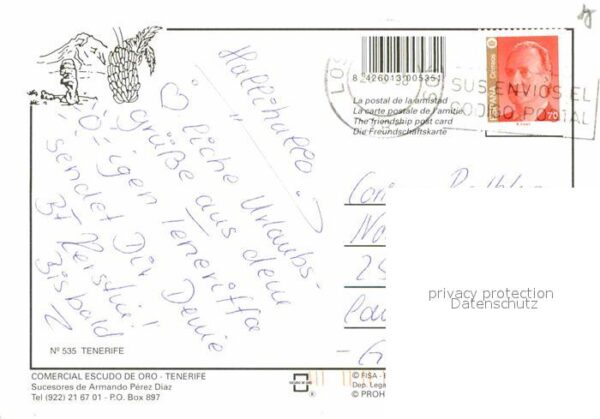 Hallihallo!
♡ liche Urlaubs-
grüße aus dem
igen Teneriffa
sendet Dir Deine
Kerstin!
Bisbald
Nº 535 TENERIFE
COMERCIAL ESCUDO DE ORO - TENERIFE
Sucesores de Armando Pérez Diaz
Tel (922) 21 67 01 - P.O. Box 897
8426013005351
La postal de la amistad
La carte postale de l'amitié
The friendship post card
Die Freundschaftskarte
ESPAÑA Correos
70
SUS ENVIOS EL
CODIGO POSTAL
privacy protection
Datenschutz
© FISA
Dep. Lega
© PROH